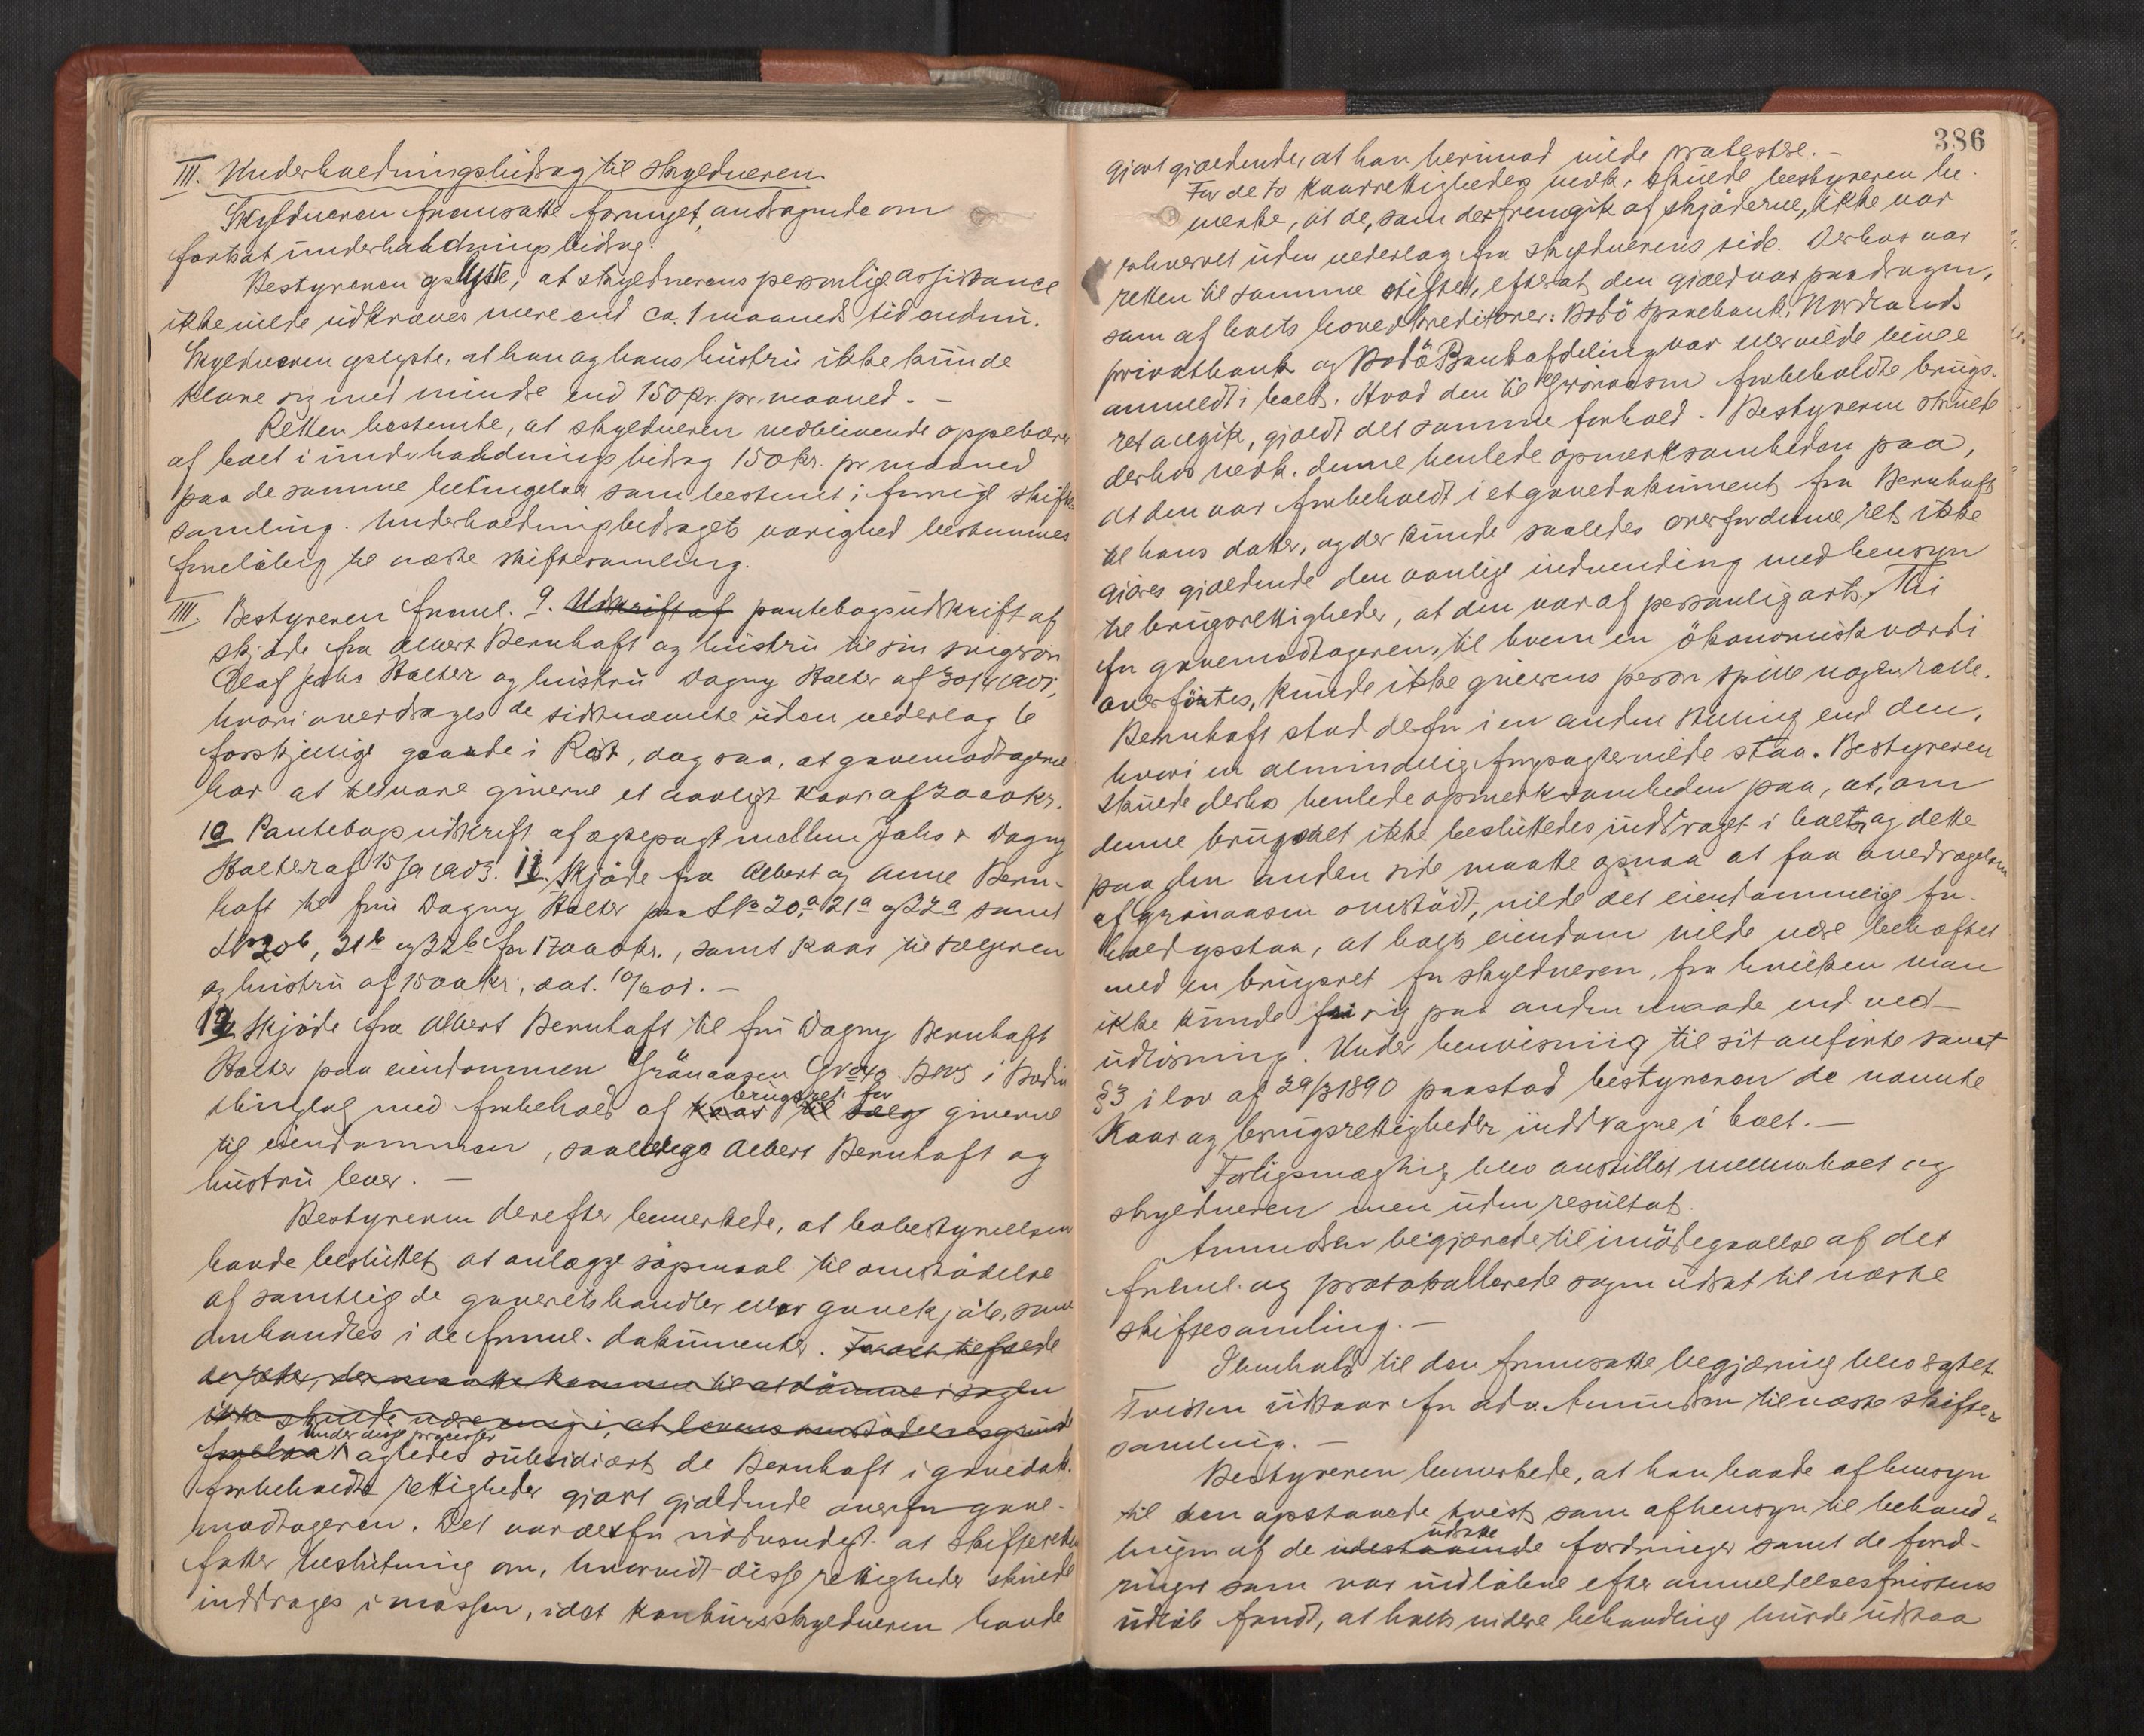 III. Underholdningsbidrag til skyldneren.
Skyldneren fremsatte fornyet andragende om
fortsat underholdningsbidrag.
Bestyreren oplyste, at skyldnerens personlige assistance
ikke vilde udkræves mere end ca. 1 maaneds tid endnu.
Skyldneren oplyste, at han og hans hustru ikke kunde
klare sig med mindre end 150 kr. pr. maaned. —
Retten bestemte, at skyldneren vedblivende oppebærer
af boet i underholdningsbidrag 150 kr. pr maaned
paa de samme betingelser som bestemt i forrige skifte-
samling. Underholdningsbidragets varighed bestemmes
foreløbig til næste skiftesamling.
IIII. Bestyreren freml. 9. Udskrift af pantebogsudskrift af
skjøde fra Albert Bernhoft og hustru til sin svigersøn
Olaf Johs Halter og hustru Dagny Halter af 30/4 1901,
hvori overdrages de sidstnævnte uden vederlag 6
forskjellige gaarde i Røst, dog saa, at gavemodtagerne
har at tilsvare giverne et aarligt kaar af 2000 kr.
10 Pantebogsudskrift af ægtepagt mellem Johs & Dagny
Halter af 15/9 1903. 11. Skjøde fra Albert og Anne Bern-
hoft til fru Dagny Halter paa LNo 20a, 21a og 22a samt
LNo 20b, 21b og 22b for 17000 kr., samt kaar til sælgeren
og hustru af 1500 kr, dat. 10/6 01. —
12 Skjøde fra Albert Bernhoft til fru Dagny Bernhoft
Halter paa eiendommen Grønaasen Gno 40 Bno 5 i Bodin
thinglag med forbehold af kaar til sælg giverne
brugsret for
til eiendommen, saalænge Albert Bernhoft og
hustru lever. —
Bestyreren derefter bemerkede, at bobestyrelsen
havde besluttet at anlægge søgsmaal til omstødelse
af samtlige de gaveretshandler eller gavekjøb, som
omhandles i de freml. dokumenter. For det tilfælde
derefter, der maatte komme til at dømme i sagen
ikke skulde være enig i, at lovens omstødelsesgrund
under disse processer
forelaa agtedes subsidiært de Bernhoft i gavedok.
forbeholdte rettigheder gjort gjældende overfor gave-
modtageren. Det var derfor nødvendigt at skifteretten
fatter beslutning om, hvorvidt disse rettigheder skulde
inddrages i massen, idet konkursskyldneren havde
386
gjort gjældende, at han herimod vilde protestere. —
For de to kaarrettigheder vedk. skulde bestyreren be-
merke, at de, som det fremgik af skjøderne, ikke var
erhvervet uden vederlag fra skyldnerens side. Derhos var
retten til samme stiftet, efterat den gjæld var paadragen,
som af boets hovedkreditorer: Bodø Sparebank, Nordlands
privatbank og Bodø Bankafdeling var eller vilde blive
anmeldt i boet. Hvad den til Grønaasen forbeholdte brugs-
ret angik, gjaldt det samme forhold. Bestyreren skulde
derhos vedk. denne henlede opmerksomheden paa,
at den var forbeholdt i et gavedokument fra Bernhoft
til hans datter, og der kunde saaledes overfor denne ret ikke
gjøres gjældende den vanlige indvending med hensyn
til brugsrettigheder, at den var af personlig art. Thi
for gavemodtageren, til hvem en økonomisk værdi
overførtes, kunde ikke giverens person spille nogen rolle.
Bernhoft stod derfor i en anden stilling end den,
hvori en almindelig forpagter vilde staa. Bestyreren
skulde derhos henlede opmerksomheden paa, at, om
denne brugsret ikke besluttedes inddraget i boet, og dette
paa den anden side maatte opnaa at faa overdragelsen
af Grønaasen omstødt, vilde det eiendommelige for-
hold opstaa, at boets eiendom vilde være beheftet
med en brugsret for skyldneren, fra hvilken man
ikke kunde fri sig paa anden maade end ved
udløsning. Under henvisning til sit anførte samt
§3 i lov af 29/3 1890 paastod bestyreren de nævnte
kaar og brugsrettigheder inddragne i boet. —
Forligsmægling blev anstillet mellem boet og
skyldneren men uden resultat.
Amundsen begjærede til imødegaaelse af det
freml. og protokollerede sagen udsat til næste
skiftesamling. —
I henhold til den fremsatte begjæring blev sagtet.
Tvisten udstaar for adv. Amundsen til næste skifte-
samling. —
Bestyreren bemerkede, at han baade af hensyn
til den opstaaede tvist som af hensyn til behand-
udsatte
lingen af de udestaaende fordringer samt de ford-
ringer som var indløbne efter anmeldelsesfristens
udløb fandt, at boets videre behandling burde udstaa